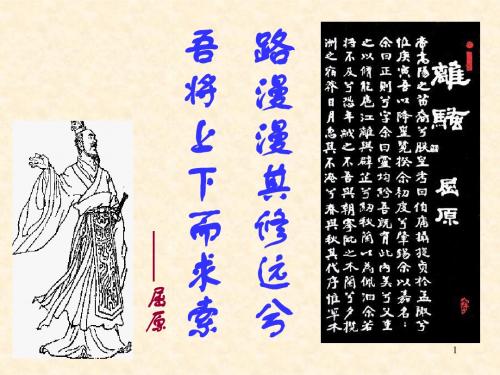 離騷
屈原
帝高陽之苗裔兮朕皇考曰伯庸攝提貞於孟陬兮
惟庚寅吾以降皇覽揆余初度兮肇錫余以嘉名：
余曰正則兮字余曰靈均紛吾既有此內美兮又重
之以脩能扈江離與辟芷兮紉秋蘭以為佩汩余若
將不及兮恐年歲之不吾與朝搴阰之木蘭兮夕攬
洲之宿莽日月忽其不淹兮春與秋其代序惟草木
路漫漫其修远兮
吾将上下而求索
——屈原
1